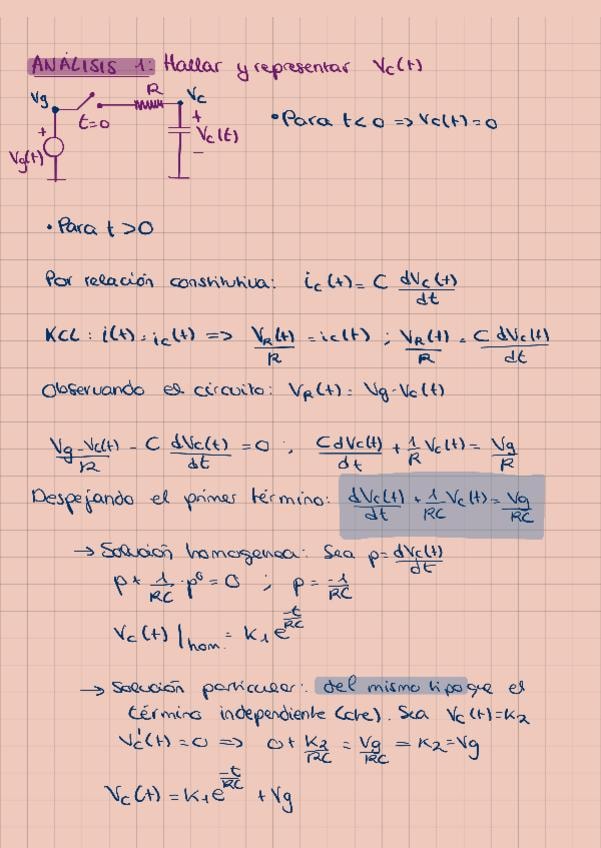 ANÁLISIS 1: Hallar y representar Vc(t)
Vg
R
Vc
t=0
+
Vg(t)
+
Vc(t)
−
• Para t<0 => Vc(t)=0
• Para t>0
Por relación constitutiva: ic(t)= C dVc(t)/dt
KCL: i(t)=ic(t) => VR(t)/R = ic(t) ; VR(t)/R = C dVc(t)/dt
Observando el circuito: VR(t)= Vg-Vc(t)
Vg-Vc(t)/R - C dVc(t)/dt = 0 ; C dVc(t)/dt + 1/R Vc(t)= Vg/R
Despejando el primer término: dVc(t)/dt + 1/RC Vc(t)= Vg/RC
→ Solución homogenea: Sea p= dVc(t)/dt
p+ 1/RC · p⁰ = 0 ; p= -1/RC
Vc(t)|hom. = K1 e^(-t/RC)
→ Solución particular: del mismo tipo que el
término independiente (cte). Sea Vc(t)=K2
Vc'(t)=0 => 0+ K2/RC = Vg/RC = K2=Vg
Vc(t) = K1 e^(-t/RC) + Vg